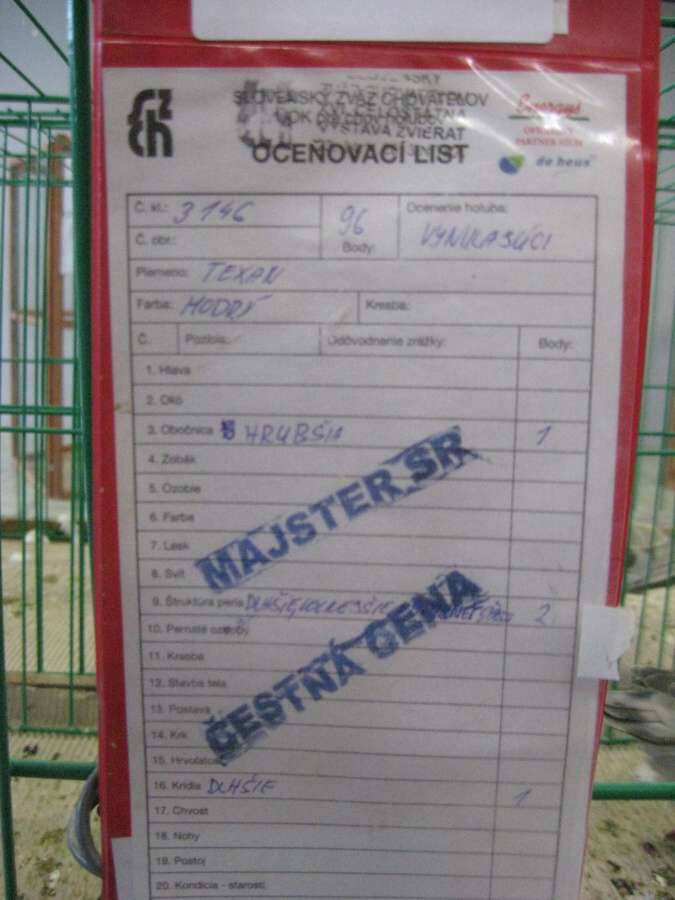 SLOVENSKÝ ZVÄZ CHOVATEĽOV
VÝSTAVA ZVIERAT
OCEŇOVACÍ LIST
OFICIÁLNY
PARTNER SZCH
de heus
Č. kl.: 3146
96
Body:
Ocenenie holuba:
VYNIKAJÚCI
Č. obr.:
Plemeno: TEXAN
Farba: MODRÝ
Kresba:
Č. Pozícia: Odôvodnenie zrážky: Body:
1. Hlava
2. Oko
3. Obočnica HRUBŠIA 1
4. Zobák
5. Ozobie
6. Farba
7. Lesk
8. Svit
MAJSTER SR
9. Štruktúra peria DLHŠIE 2
10. Pernaté ozdoby
11. Kresba
12. Stavba tela
ČESTNÁ CENA
13. Postava
14. Krk
15. Hrvolatosť
16. Krídla DLHŠIE 1
17. Chvost
18. Nohy
19. Postoj
20. Kondícia - starosti